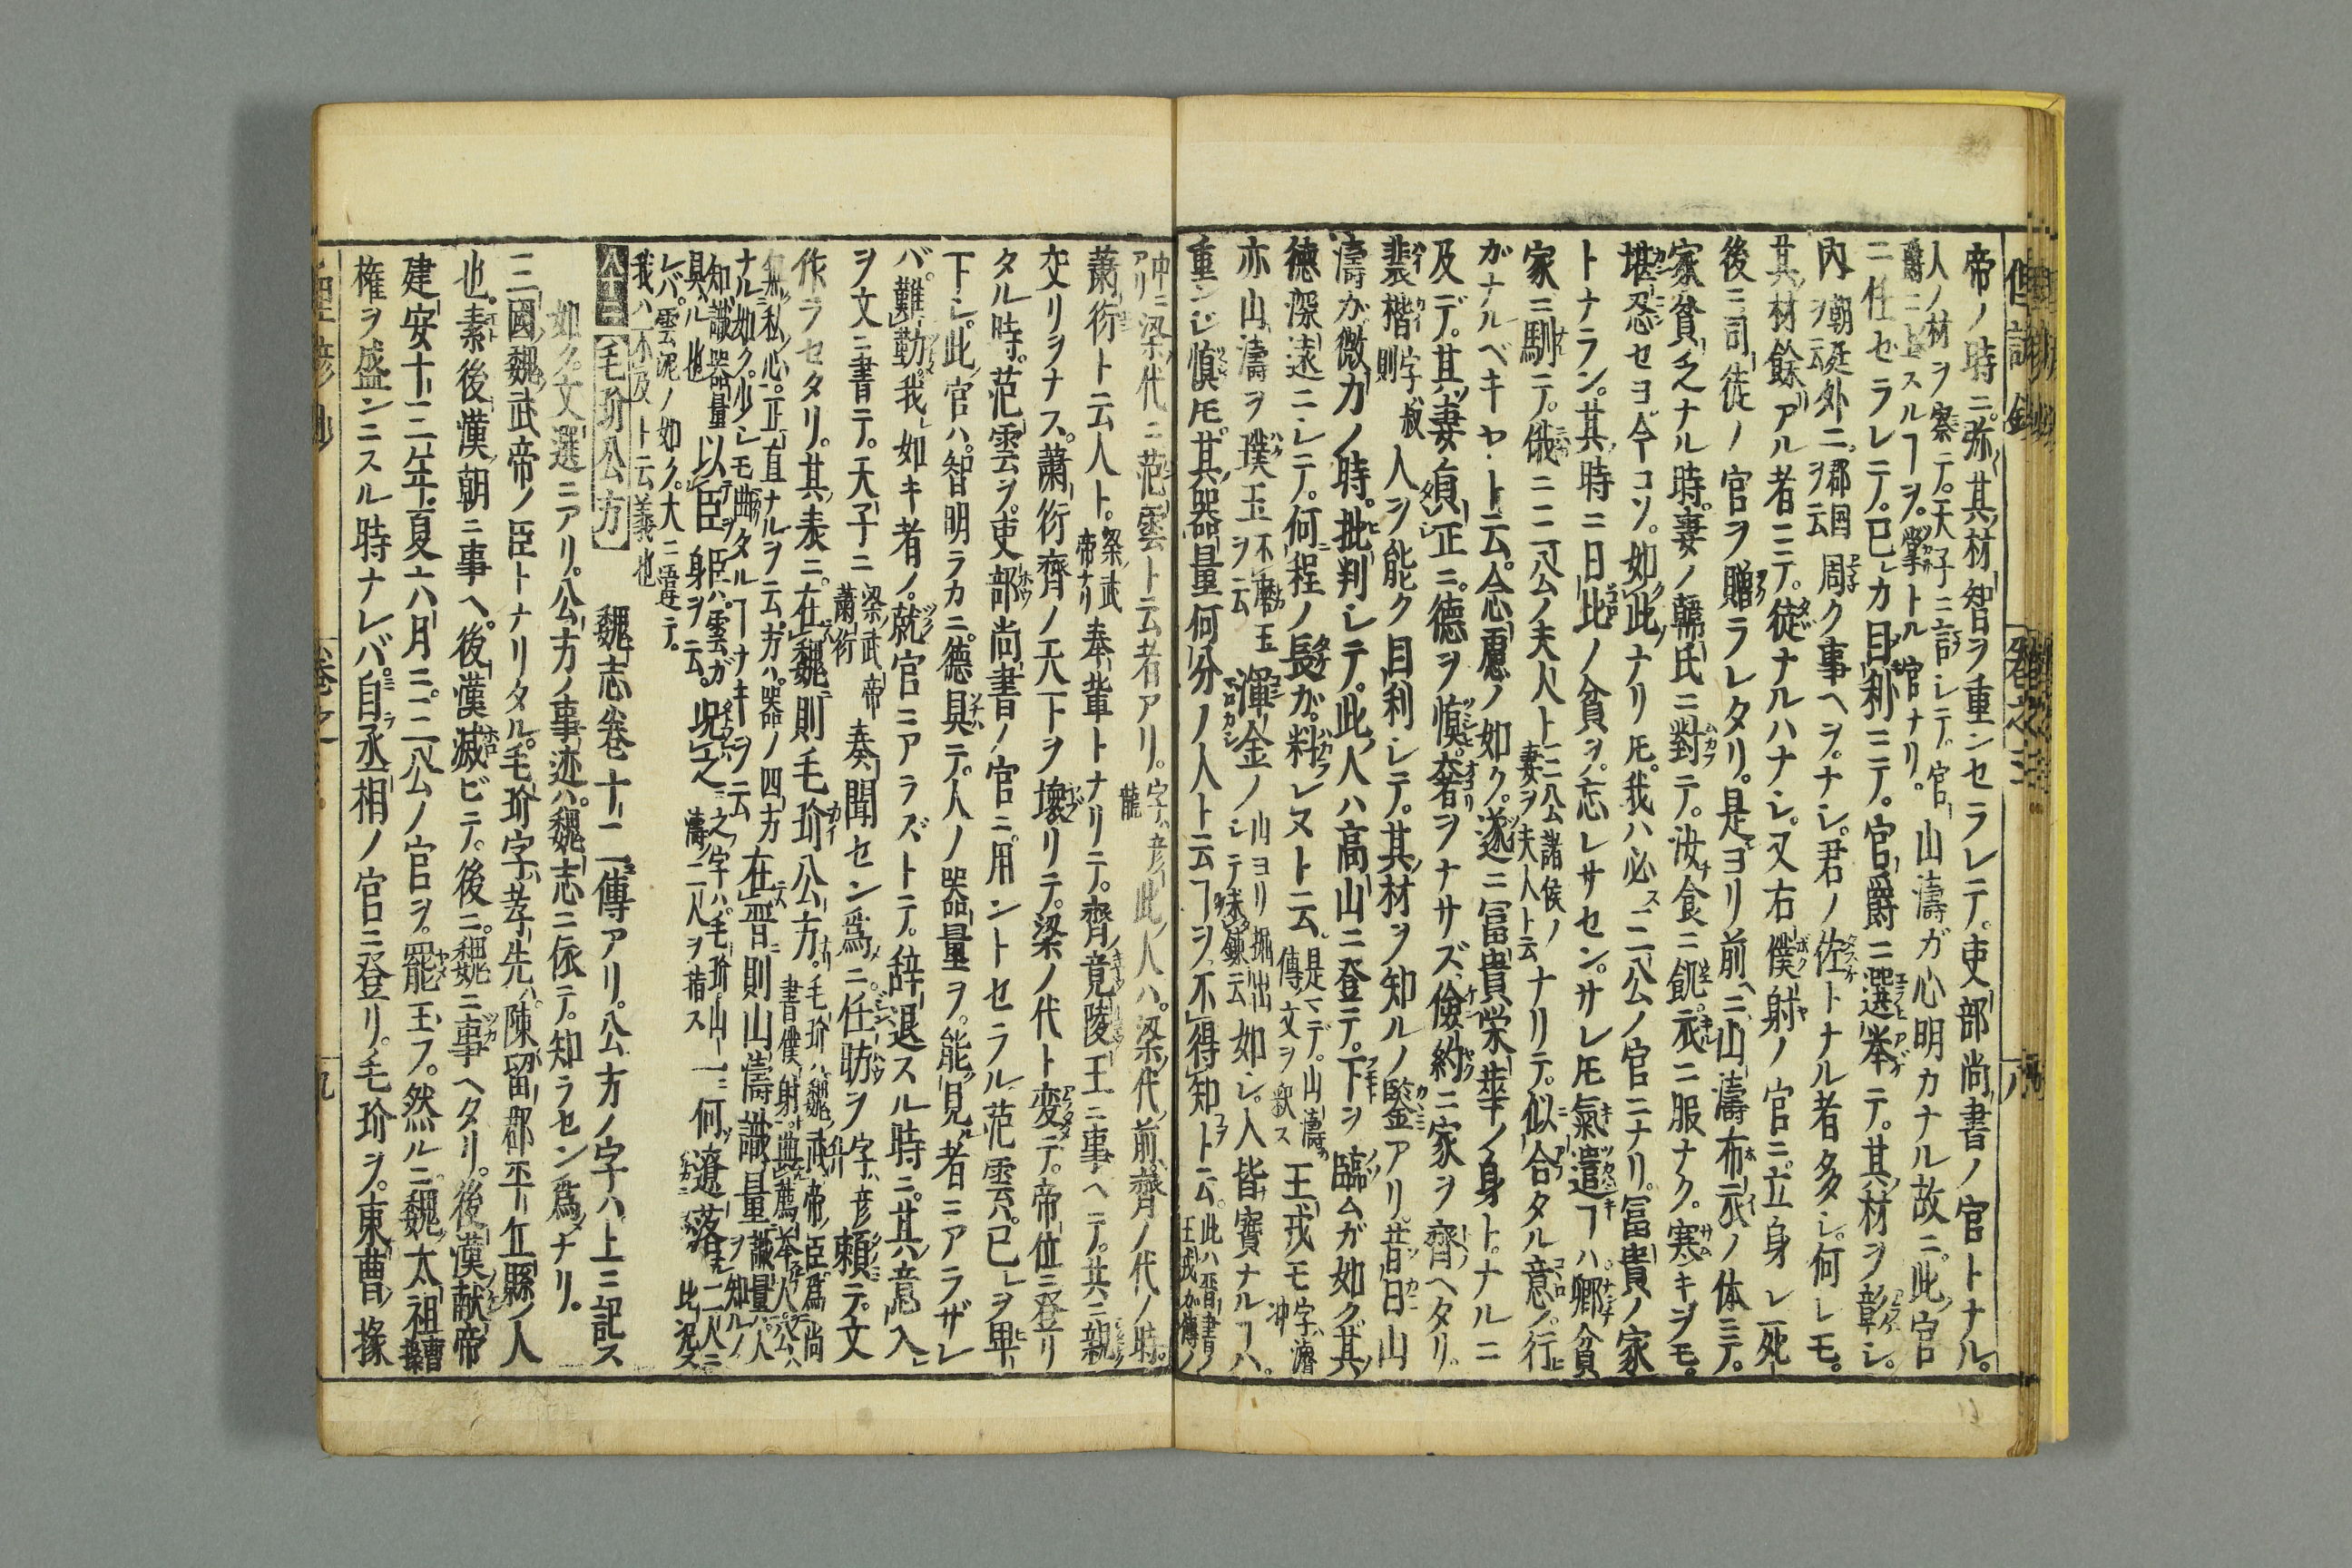 帝ノ時ニ。弥其材智ヲ重ンセラレテ。吏部尚書ノ官トナル。
人ノ材ヲ察テ。天子ニ言シテ。官
爵ニ上スルヿヲ。掌トル官ナリ。山濤ガ心明カナル故ニ。此官
ニ任ゼラレテ。已レカ目利ニテ。官爵ニ選挙テ。其材ヲ彰シ。
内ヲ云朝廷外ニ。郡国ヲ云周ク事ヘヲ。ナシ。君ノ佐トナル者多シ。何レモ。
其材餘アル者ニテ。徒ナルハナシ。又右僕射ノ官ニ立身シ死
後ニ司徒ノ官ヲ贈ラレタリ。是ヨリ前ニ山濤布衣ノ体ニテ。
家貧乏ナル時。妻ノ韓氏ニ對テ。汝食ニ飢。衣ニ服ナク。寒キヲモ。
堪忍セヨ今コソ。如此ナリ𪜈。我ハ必ス三公ノ官ニナリ。冨貴ノ家
トナラン。其時ニ日比ノ貧ヲ。忘レサセン。サレ𪜈氣遣ヿハ卿貧
家ニ馴テ。俄ニ三公ノ夫人ト三公諸侯ノ妻ヲ夫人ト云ナリテ。似合タル意ノ。行
ガナルベキヤ。ト云。念慮ノ如ク。遂ニ冨貴栄華ノ身ト。ナルニ
及デ。其妻貞正ニ。德ヲ慎。奢ヲナサズ。儉約ニ家ヲ齊ヘタリ。
裴楷字叔則人ヲ能ク目利シテ。其材ヲ知ルノ鑒アリ。昔日山
濤ガ微力ノ時。批判シテ。此人ハ高山ニ登テ。下ヲ臨ムガ如ク。其
德深遠ニシテ。何程ノ長ガ。料レヌト云。是マデ。山濤傳文ヲ釈ス王戎モ字濬冲
亦山濤ヲ璞玉不磨玉ヲ云渾金ノ山ヨリ掘出シテ未鍊云如シ。人皆寳ナルヿハ。
重シ慎𪜈。其器量何分ノ人ト云ヿヲ。不得知ト云。此ハ晋書ノ王戎ガ傳ノ
中ニアリ梁代ニ范雲ト云者アリ。字彦龍此人ハ。梁代前。齊ノ代ノ時。
蕭衍ト云人ト。梁武帝ナリ奉輩トナリテ。齊竟陵王ニ事ヘテ。其ニ親
交リヲナス。蕭衍齊ノ天下ヲ壞リテ。梁ノ代ト変テ。帝位ニ登リ
タル時。范雲ヲ。吏部尚書ノ官ニ。用ントセラル。范雲已レヲ卑
下シ。此官ハ。智明ラカニ。德具テ。人ノ器量ヲ。能見者ニアラザレ
バ。難勤。我如キ者ノ。就官ニアラズトテ。辞退スル時ニ。其意入
ヲ文ニ書テ。天子ニ梁武帝蕭衍奏聞セン爲ニ。任昉ヲ字彦升頼テ。文
作ラセタリ。其表ニ。在魏則毛玠公方。毛玠ハ魏武帝ノ臣。爲尚書僕射典薦挙人。公ハ
無私心。正直ナルヲ云。方ハ。器ノ四方
ナル如ク。少シモ曲タルヿナキヲ云在晋則山濤識量識量ハ。人ヲ知ルノ
知識器量具ル也以臣臣ハ。雲ガ身ヲ云。况之之字ハ。毛玠山濤ノ二人ヲ指ス一何遼落二人ニ此况ス
レバ。雲泥ノ如ク。大ニ違テ。
我ハ不及ト云義也
八十三 毛玠公方 魏志巻十二傳アリ。公方ノ字ハ上ニ記ス
如ク。文選ニアリ。公方ノ事迹ハ。魏志ニ依テ。知ラセン爲ナリ。
三國魏武帝ノ臣トナリタル。毛玠字ハ孝先。陳留郡平丘縣ノ人
也。素後漢朝ニ事ヘ。後漢滅ビテ。後ニ。魏ニ事ヘタリ。後漢献帝
建安十三年夏六月ニ。三公ノ官ヲ。罷玉フ。然ルニ。魏太祖曹操
権ヲ盛ンニスル時ナレバ。自丞相ノ官ニ登リ。毛玠ヲ。東曹掾